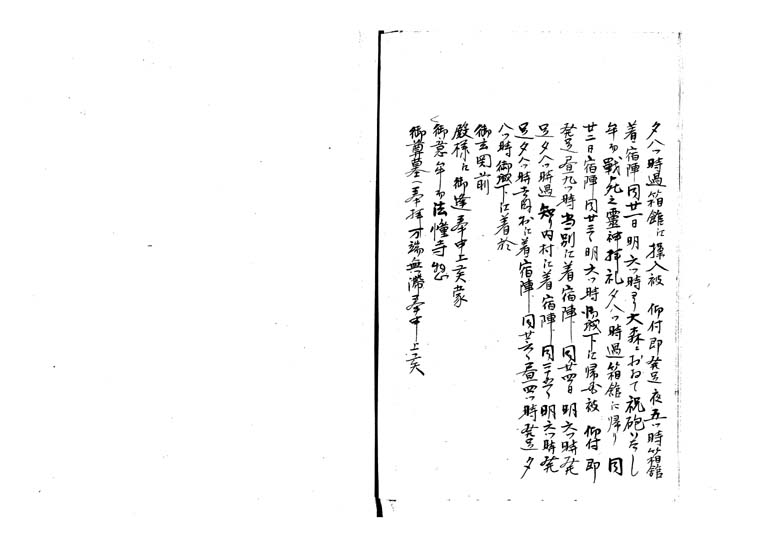 夕八ツ時過箱館江操入被　仰付即発足夜五ツ時箱館
着宿陣同廿一日明六ツ時ゟ大森ニおゐて祝砲いたし
午而戦死之霊神拝礼夕八ツ時過箱館江帰り同
廿二日宿陣同廿三日明六ツ時御城下江帰陣被　仰付即
発足昼九ツ時当別江着宿陣同廿四日明六ツ時発
足夕八ツ時過知り内村江着宿陣同二十五日明六ツ時発
足夕八ツ時吉岡村江着宿陣同廿六日昼四ツ時発足夕
八ツ時御城下江着於
御玄関前
殿様江御逢奉申上候蒙
御意午而法憧寺惣
御尊墓へ奉拝万端無滞奉申上候